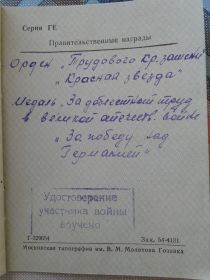 Серия ГЕ
Правительственные награды
Орден „Трудового Кр. знамени
„Красная звезда"
Медаль „За доблестный труд
в великой отечеств. войне
„За победу над
Германией"
Удостоверение
участника войны
вручено
Зак. 54-4121
Московская типография им. В. М. Молотова Гознака